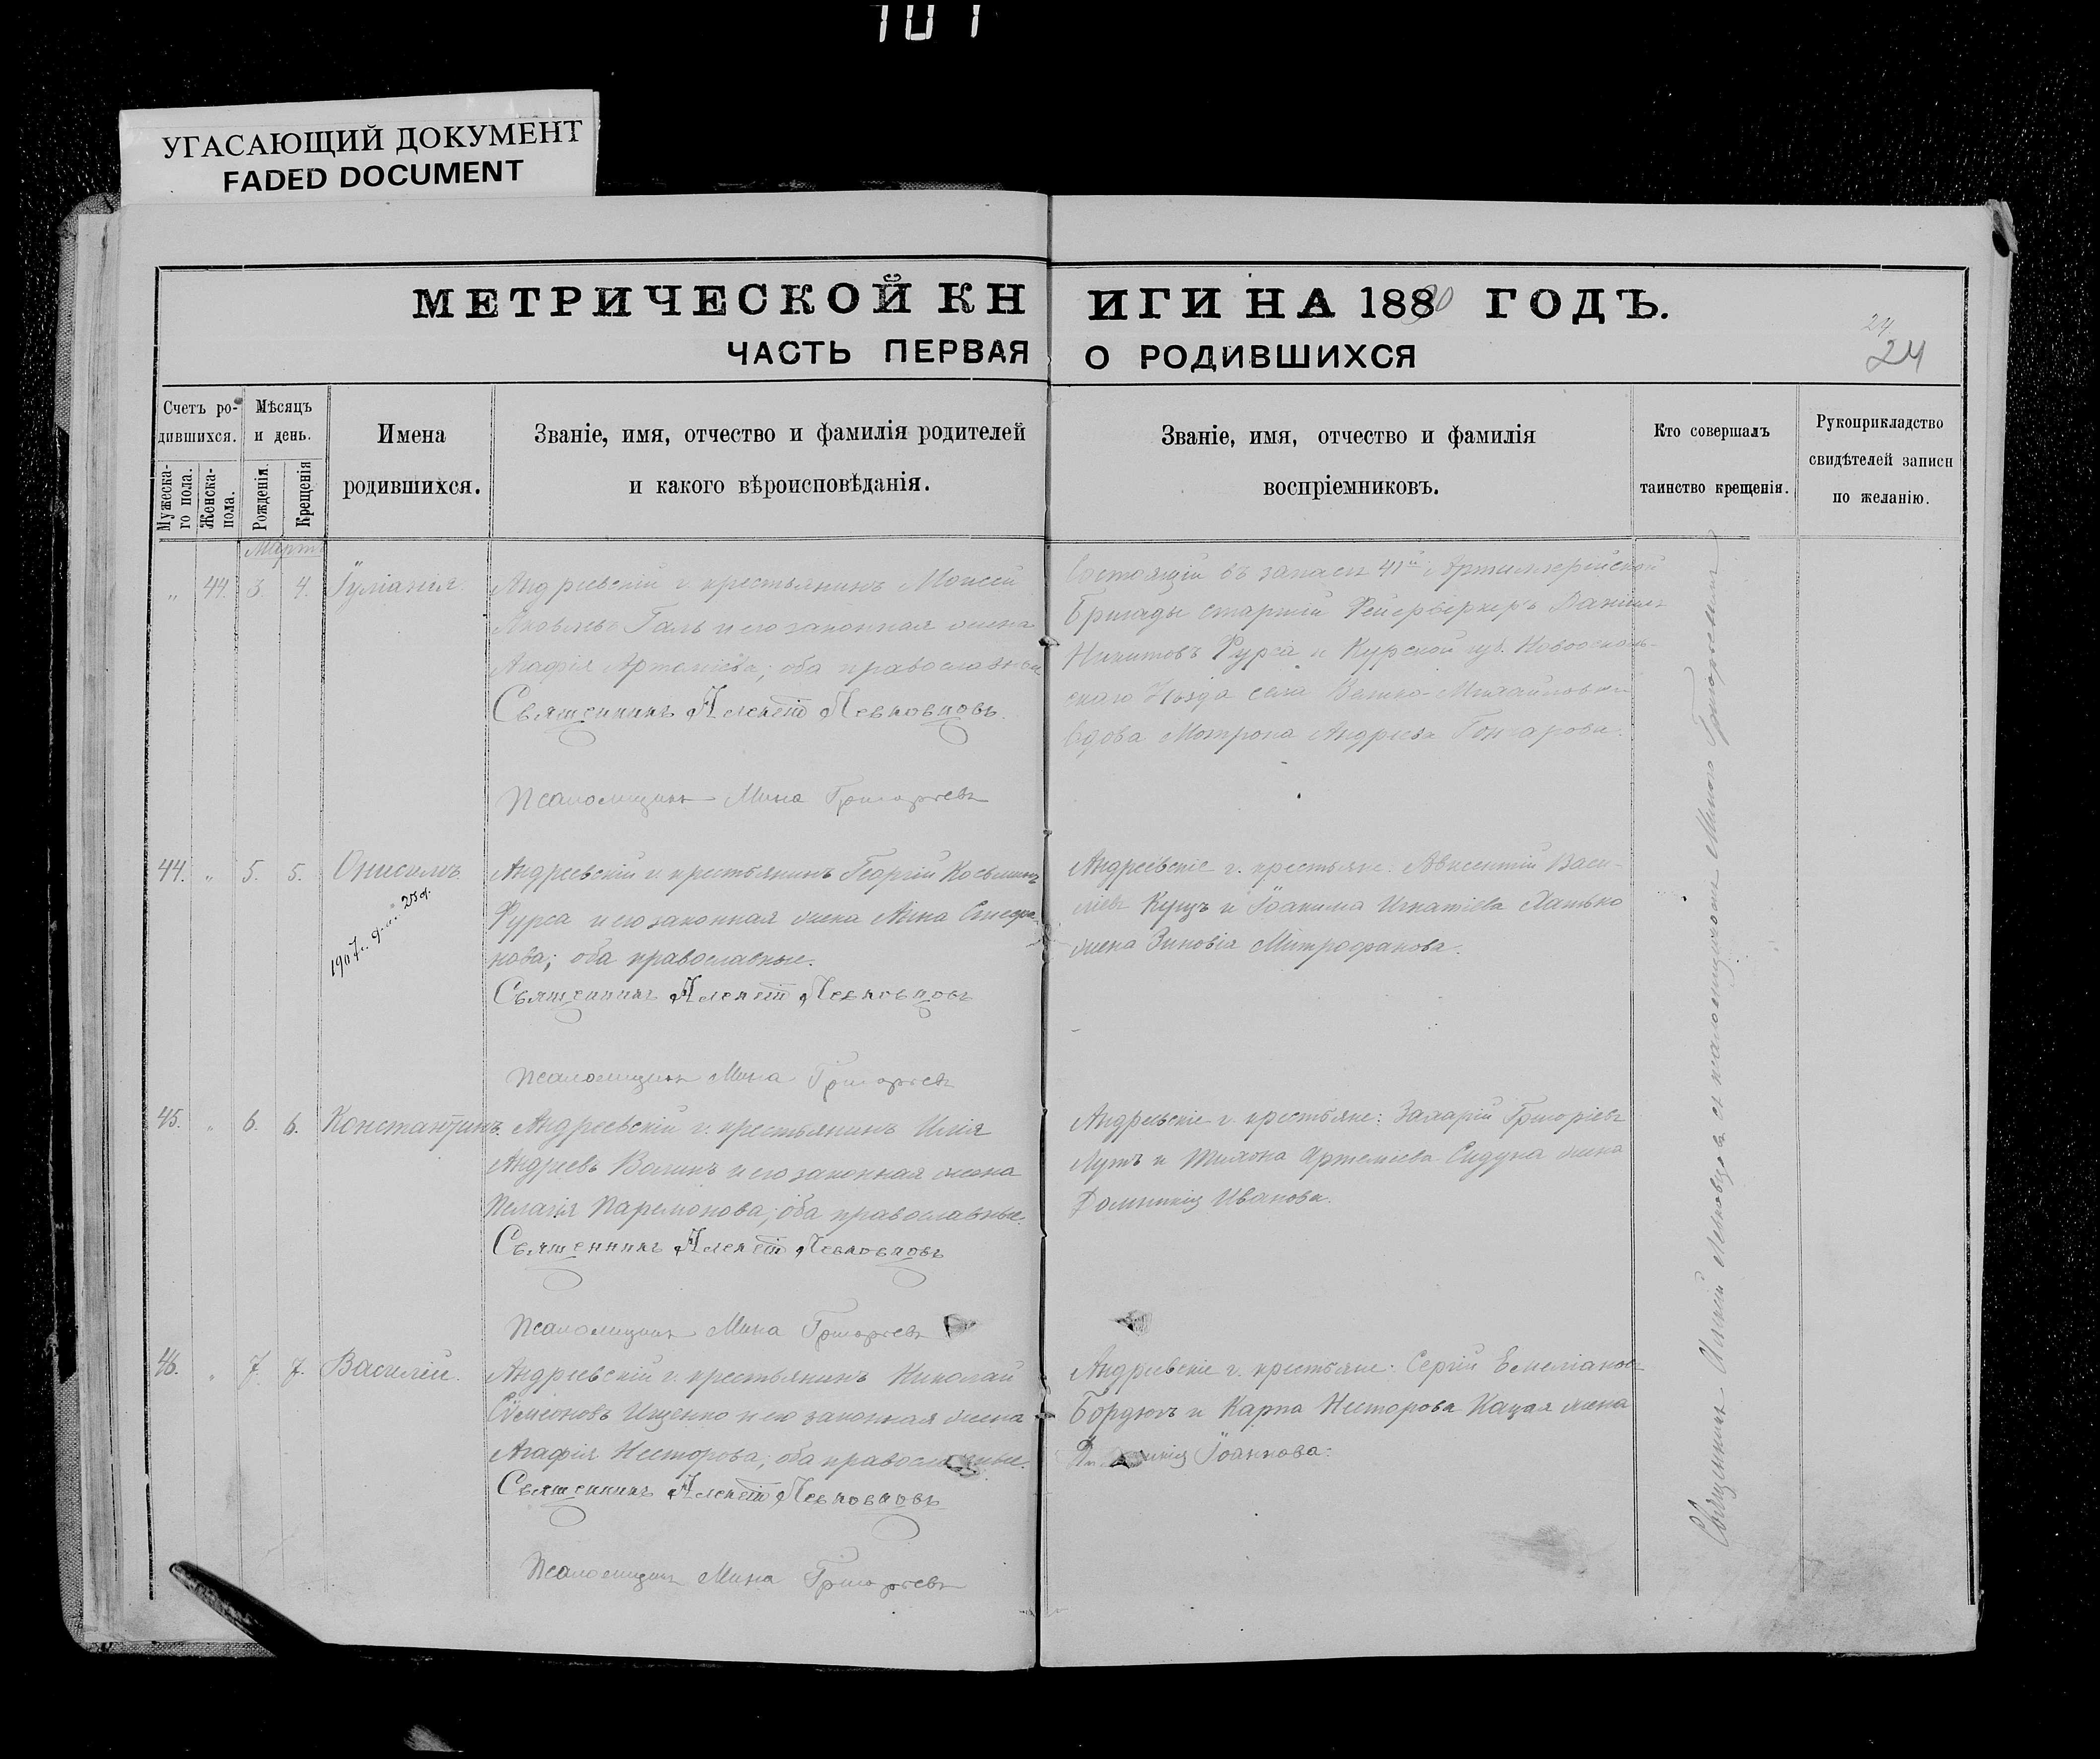 101
УГАСАЮЩИЙ ДОКУМЕНТ
FADED DOCUMENT
МЕТРИЧЕСКОЙ КНИГИ НА 1890 ГОДЪ.
ЧАСТЬ ПЕРВАЯ О РОДИВШИХСЯ
24
24
Счетъ ро-
дившихся.
Мужеска-
го пола.
Женска-
пола.
Мѣсяцъ
и день.
Рожденія.
Крещенія
Имена
родившихся.
Званіе, имя, отчество и фамилія родителей
и какого вѣроисповѣданія.
Званіе, имя, отчество и фамилія
воспріемниковъ.
Кто совершалъ
таинство крещенія.
Рукоприкладство
свидѣтелей записи
по желанію.
Мартъ
" 44. 3. 4. Іуліанія.
Андреевскій г. крестьянинъ Моисей
Яковлевъ Галь и его законная жена
Агафія Артеміева; оба православные
Священникъ Алексій Левковцовъ.
Псаломщикъ Мина Григорьевъ
Состоящій въ запасѣ 41й Артиллерійской
Бригады старшій Фейерверкеръ Даніилъ
Никитовъ Фурса и Курской губ. Новоосколь-
скаго Уѣзда села Велико-Михайловки
вдова Матрона Андреева Гончарова.
44. " 5. 5. Онисимъ
Андреевскій г. крестьянинъ Георгій Косьминъ
Фурса и его законная жена Анна Стефа-
нова; оба православные.
Священникъ Алексій Левковцовъ
Псаломщикъ Мина Григорьевъ
Андреевскіе г. крестьяне: Авксентій Васи-
ліевъ Куцъ и Іоакима Игнатіева Хатько
жена Зиновія Митрофанова.
45. " 6. 6. Константинъ.
Андреевскій г. крестьянинъ Илія
Андреевъ Волик и его законная жена
Пелагія Парамонова; оба православные.
Священникъ Алексій Левковцовъ
Псаломщикъ Мина Григорьевъ
Андреевскіе г. крестьяне: Захарій Григоріевъ
Лутъ и Тихона Артеміева Сидука жена
Домникія Иванова.
46. " 7. 7. Василій.
Андреевскій г. крестьянинъ Николай
Семеоновъ Ищенко и его законная жена
Агафія Несторова; оба православные.
Священникъ Алексій Левковцовъ
Псаломщикъ Мина Григорьевъ
Андреевскіе г. крестьяне: Сергій Емеліановъ
Бордюгъ и Карпа Несторова Кацая жена
Іоаннова.
Священникъ Алексій Левковцовъ съ псаломщикомъ Миною Григорьевымъ